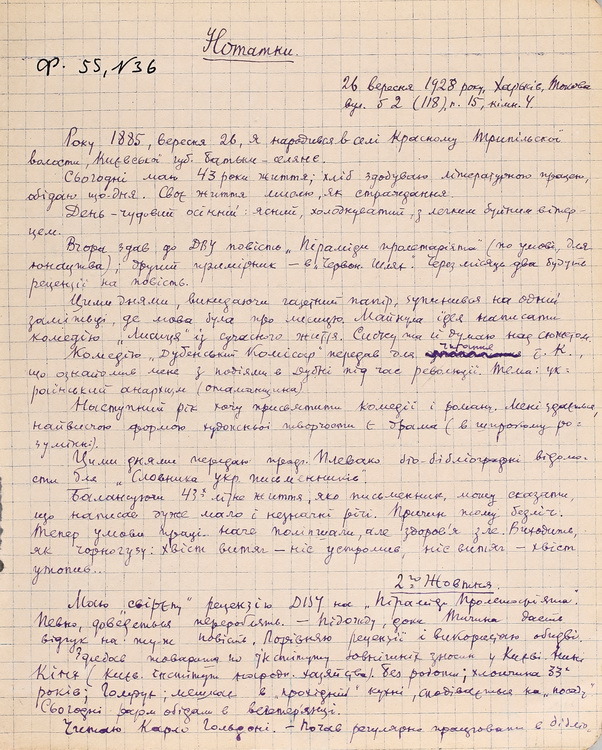 Нотатки.
Ф. 55, N36
26 вересня 1928 року, Харьків,
вул. б 2 (118), п. 15, кімн. 4
Року 1885, вересня 26, я народився в селі Красному Трипільської
волости, Київської губ. батьки – селяне.
Сьогодні маю 43 роки життя; хліб здобуваю літературною працею,
обідаю що-дня. Своє життя мислю, як страждання.
День – чудовий осінній: ясний, холоднуватий, з легким буйним вітер-
цем.
Вчора здав до ДВУ повість „Піраміди пролетаріята" (по умові, для
юнацтва); другий примірник – в „Червон. Шлях". Через місяць два будуть
рецензії на повість.
Цими днями, викидаючи газетний папір, зупинився на одній
замітці, де мова була про Майнула ідея написати
комедію із сучасного життя. Сиджу та й думаю над сюжетом.
Комедію „Дубенський Комісар" передав для читання т. К.,
що ознайомив мене з подіями в Дубні під час революції. Тема: ук-
раїнський анархизм (отаманщина)
Наступний рік хочу присвятити комедії і роману. Мені здається,
найвисчою формою художньої творчости є драма (в широкому ро-
зумінні).
Цими днями передаю проф. Плевако біо-бібліографні відомо-
сти для „Словника укр. письменників".
Балансуючи 43є літнє життя, яко письменник, можу сказати,
що написав дуже мало і незначні річи. Причин тому безліч.
Тепер умови праці наче поліпшали, але здоров'я зле. Виходить,
як чорногузу: хвіст витяг – ніс устромив, ніс витяг – хвіст
утопив..
2го Жовтня.
Маю рецензію ДВУ на „Піраміди Пролетаріята".
Певно, доведеться переробляти. – Підожду, доки Тичина дасть
відгук на ту-ж повість. Порівняю рецензії і використаю обидві.
Здибав товариша по Інституту зовнішніх зносин у Києві
Кіня (Київ. інститут народн. хазяйства). Без роботи; хлопчина 33х
років; мешкає в „прохідній" кухні, сподівається на „посаду"
Сьогодні разом обідали в вегетерянці.
Читаю Карло Гольдоні. – Почав регулярно працювати в бібліо.